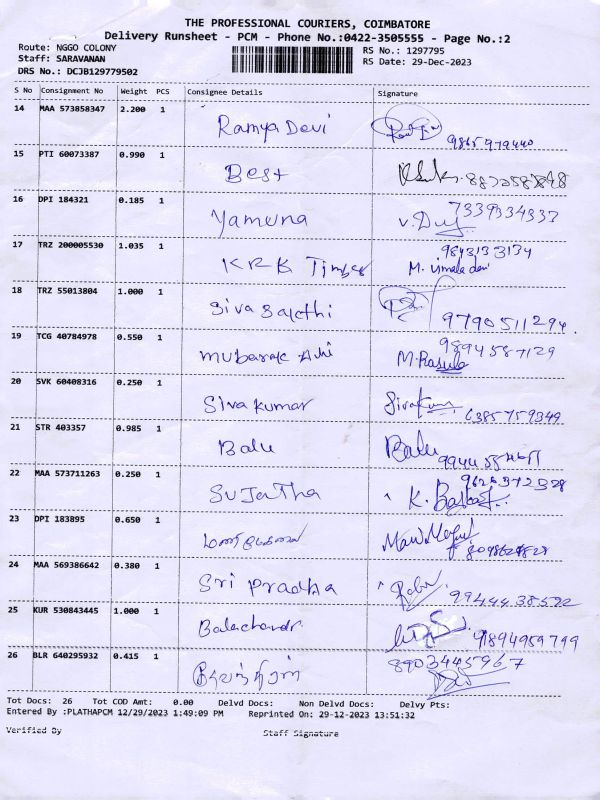 THE PROFESSIONAL COURIERS, COIMBATORE
Delivery Runsheet - PCM - Phone No.:0422-3505555 - Page No.:2
Route: NGGO COLONY RS No.: 1297795
Staff: SARAVANAN RS Date: 29-Dec-2023
DRS No.: DCJB129779502
S No Consignment No Weight PCS Consignee Details Signature
14 MAA 573858347 2.200 1 Ramya Devi
15 PTI 60073387 0.990 1 Best
16 DPI 184321 0.185 1 Yamuna 7339334333
17 TRZ 200005530 1.035 1 KRK Timber 9843133134
M. vimala devi
18 TRZ 55013804 1.000 1 Siva Sakthi 9790511294
19 TCG 40784978 0.550 1 mubarak Ali 9894587129
M. Rasula
20 SVK 60408316 0.250 1 Siva kumar Sivakum 6385759349
21 STR 403357 0.985 1 Balu Balu
22 MAA 573711263 0.250 1 SuJatha
K. Baskar
23 DPI 183895 0.650 1
24 MAA 569386642 0.380 1 Sri Pradha 9944438592
25 KUR 530843445 1.000 1 Balachandr 9894959799
26 BLR 640295932 0.415 1 8903445967
Tot Docs: 26 Tot COD Amt: 0.00 Delvd Docs: Non Delvd Docs: Delvy Pts:
Entered By :PLATHAPCM 12/29/2023 1:49:09 PM Reprinted On: 29-12-2023 13:51:32
Verified By Staff Signature